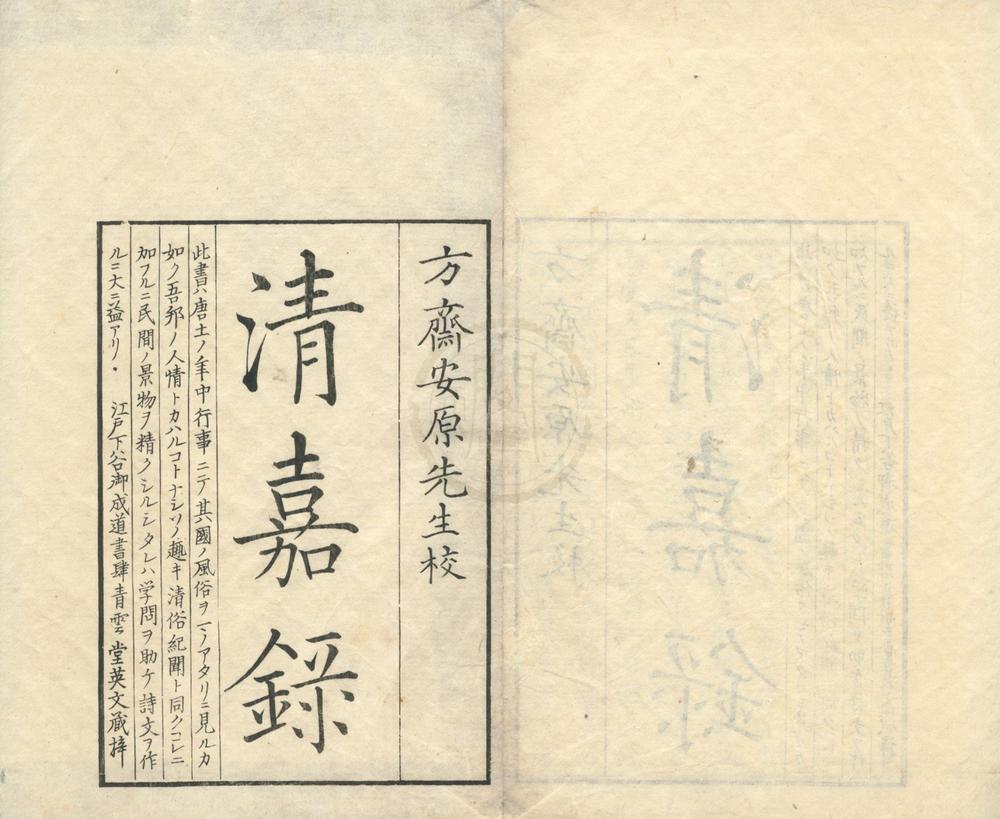 方齋安原先生校
清嘉録
此書ハ唐土ノ年中行事ニテ其國ノ風俗ヲマノアタリニ見ルカ
如ク吾邦ノ人情トカハルコトナシソノ趣キ清俗紀聞ト同クコレニ
加フルニ民間ノ景物ヲ精クシルシタレハ学問ヲ助ケ詩文ヲ作
ルニ大ニ益アリ・ 江戸下谷御成道書肆青雲堂英文蔵梓